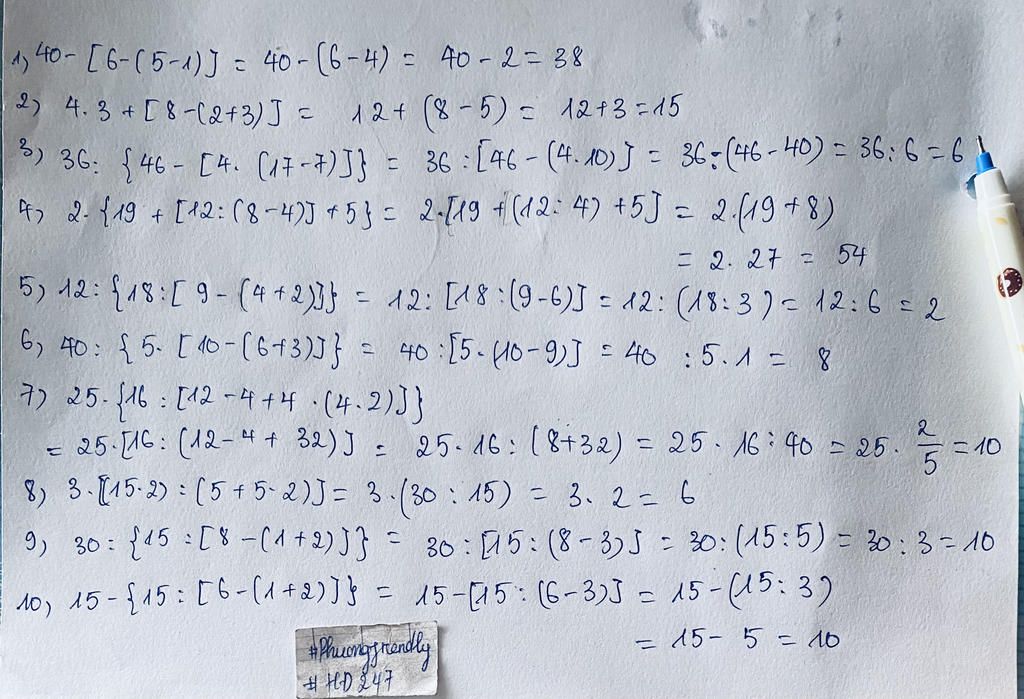 1, 40 - [6 - (5 - 1)] = 40 - (6 - 4) = 40 - 2 = 38
2) 4.3 + [8 - (2+3)] = 12 + (8 - 5) = 12 + 3 = 15
3) 36 : {46 - [4. (17 - 7)]} = 36 : [46 - (4.10)] = 36 : (46 - 40) = 36 : 6 = 6
4, 2. {19 + [12 : (8 - 4)] + 5} = 2.[19 + (12 : 4) + 5] = 2.(19 + 8)
= 2. 27 = 54
5) 12 : {18 : [9 - (4 + 2)]} = 12 : [18 : (9 - 6)] = 12 : (18 : 3) = 12 : 6 = 2
6, 40 : {5. [10 - (6 + 3)]} = 40 : [5. (10 - 9)] = 40 : 5. 1 = 8
7) 25. {16 : [12 - 4 + 4 . (4.2)]}
= 25. [16 : (12 - 4 + 32)] = 25. 16 : (8 + 32) = 25 . 16 : 40 = 25. 2/5 = 10
8) 3. [(15.2) : (5 + 5.2)] = 3. (30 : 15) = 3. 2 = 6
9, 30 : {15 : [8 - (1 + 2)]} = 30 : [15 : (8 - 3)] = 30 : (15 : 5) = 30 : 3 = 10
10, 15 - {15 : [6 - (1 + 2)]} = 15 - [15 : (6 - 3)] = 15 - (15 : 3)
= 15 - 5 = 10
#Phuongfrendly
#HD247